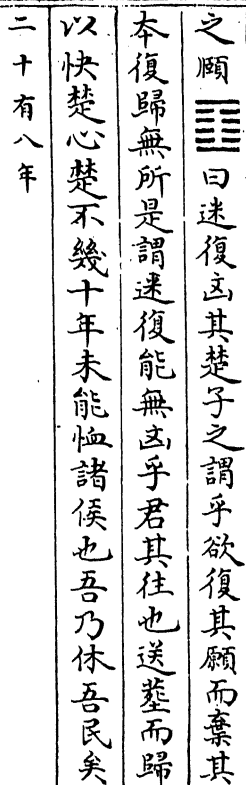 之頤䷚曰迷復凶其楚子之謂乎欲復其願而棄其
本復歸無所是謂迷復能無凶乎君其往也送葬而歸
以快楚心楚不幾十年未能恤諸侯也吾乃休吾民矣
二十有八年